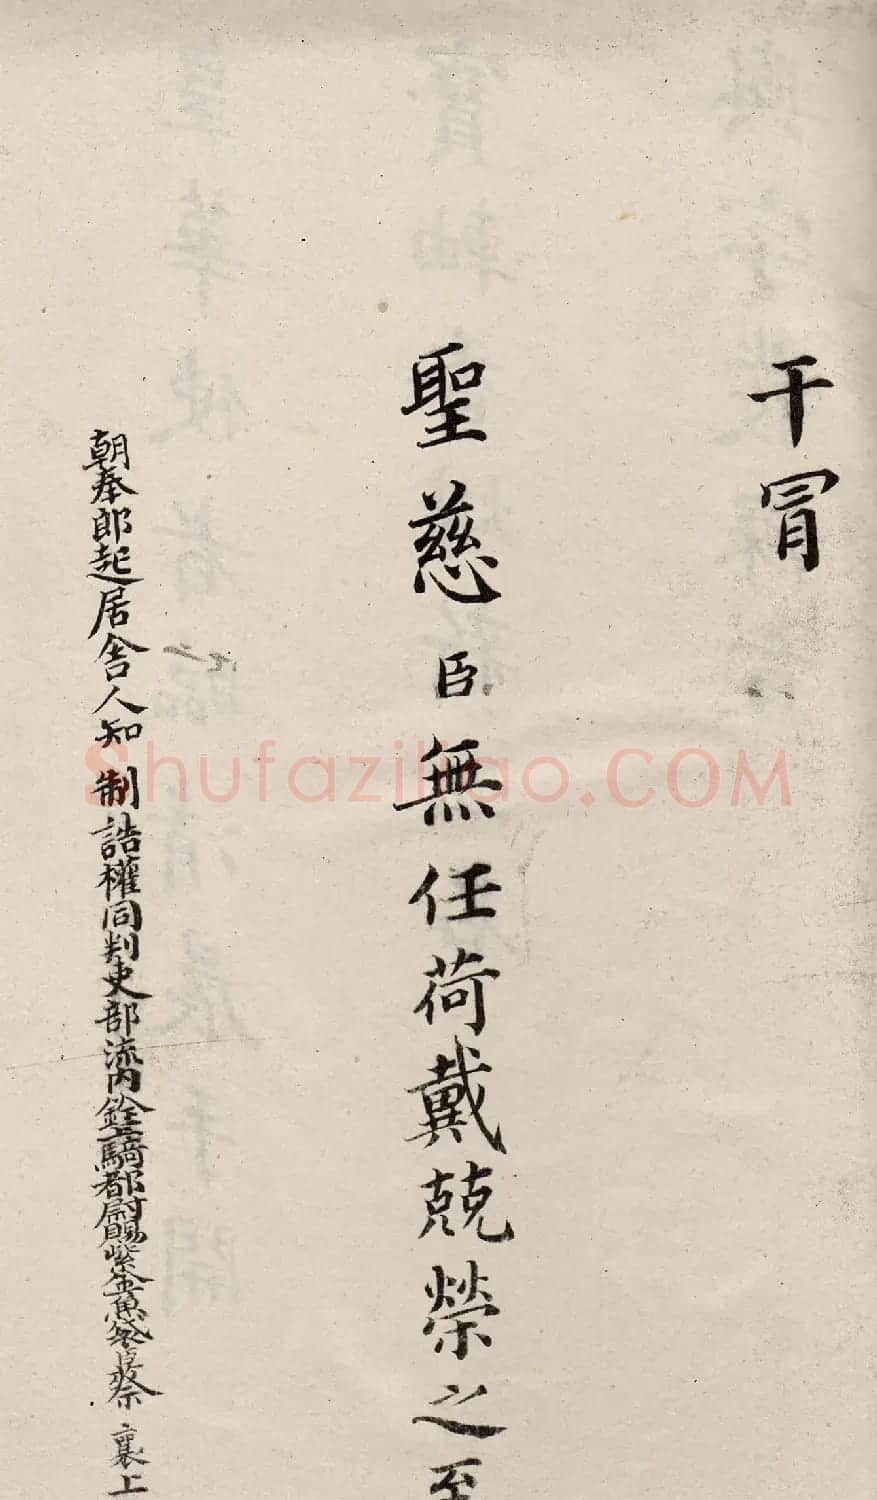 干冒
聖慈臣無任荷戴兢榮之至
朝奉郎起居舍人知制誥權同判吏部流內銓上騎都尉賜紫金魚袋臣蔡襄上
Shufaziliao.COM